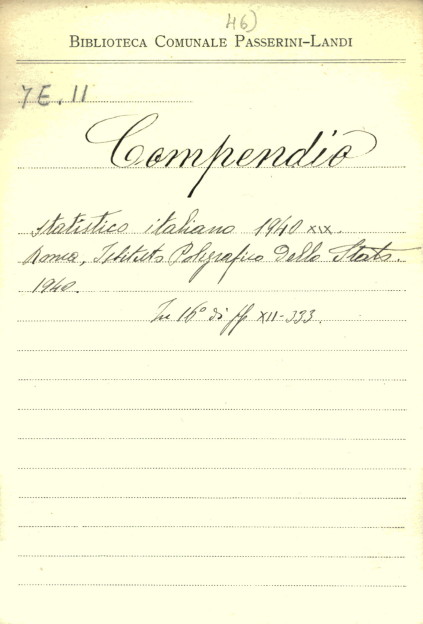 46)
BIBLIOTECA COMUNALE PASSERINI-LANDI
7E. II
Compendio
statistico italiano 1940 XIX.
Roma, Istituto Poligrafico dello Stato.
1940.
In 16° di pp XII-333.